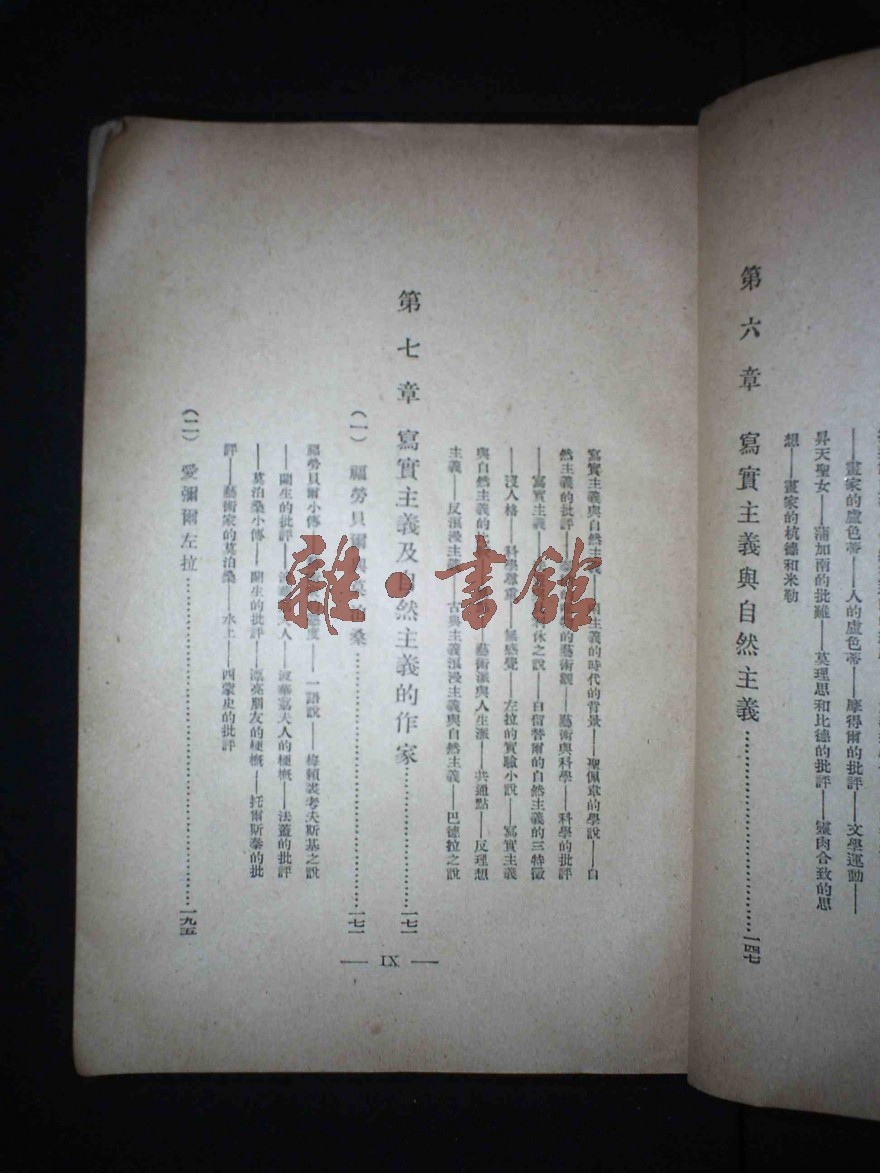 ——畫家的盧色蒂——人的盧色蒂——摩得爾的批評——文學運動——
昇天聖女——蒲加南的批難——莫理思和比德的批評——靈肉合致的思
想——畫家的杭德和米勒
第六章 寫實主義與自然主義…………一四七
寫實主義與自然主義——主義的時代的背景——聖佩韋的學說——自
然主義的批評——的藝術觀——藝術與科學——科學的批評
——寫實主義——休之說——白留替爾的自然主義的三特徵
——沒人格——科學尊重——無感覺——左拉的實驗小說——寫實主義
與自然主義的——藝術派與人生派——共通點——反理想
主義——反浪漫主義——古典主義浪漫主義與自然主義——巴德拉之說
第七章 寫實主義及自然主義的作家…………一七一
(一) 福勞貝爾與莫泊桑…………一七一
福勞貝爾小傳——態度——一語說——梅賴裘考夫斯基之說
——開生的批評——夫人——波華荔夫人的梗概——法蓋的批評
——莫泊桑小傳——開生的批評——漂亮朋友的梗概——托爾斯泰的批
評——藝術家的莫泊桑——水上——西蒙史的批評
(二) 愛彌爾左拉…………一九五
— IX —
雜·書館